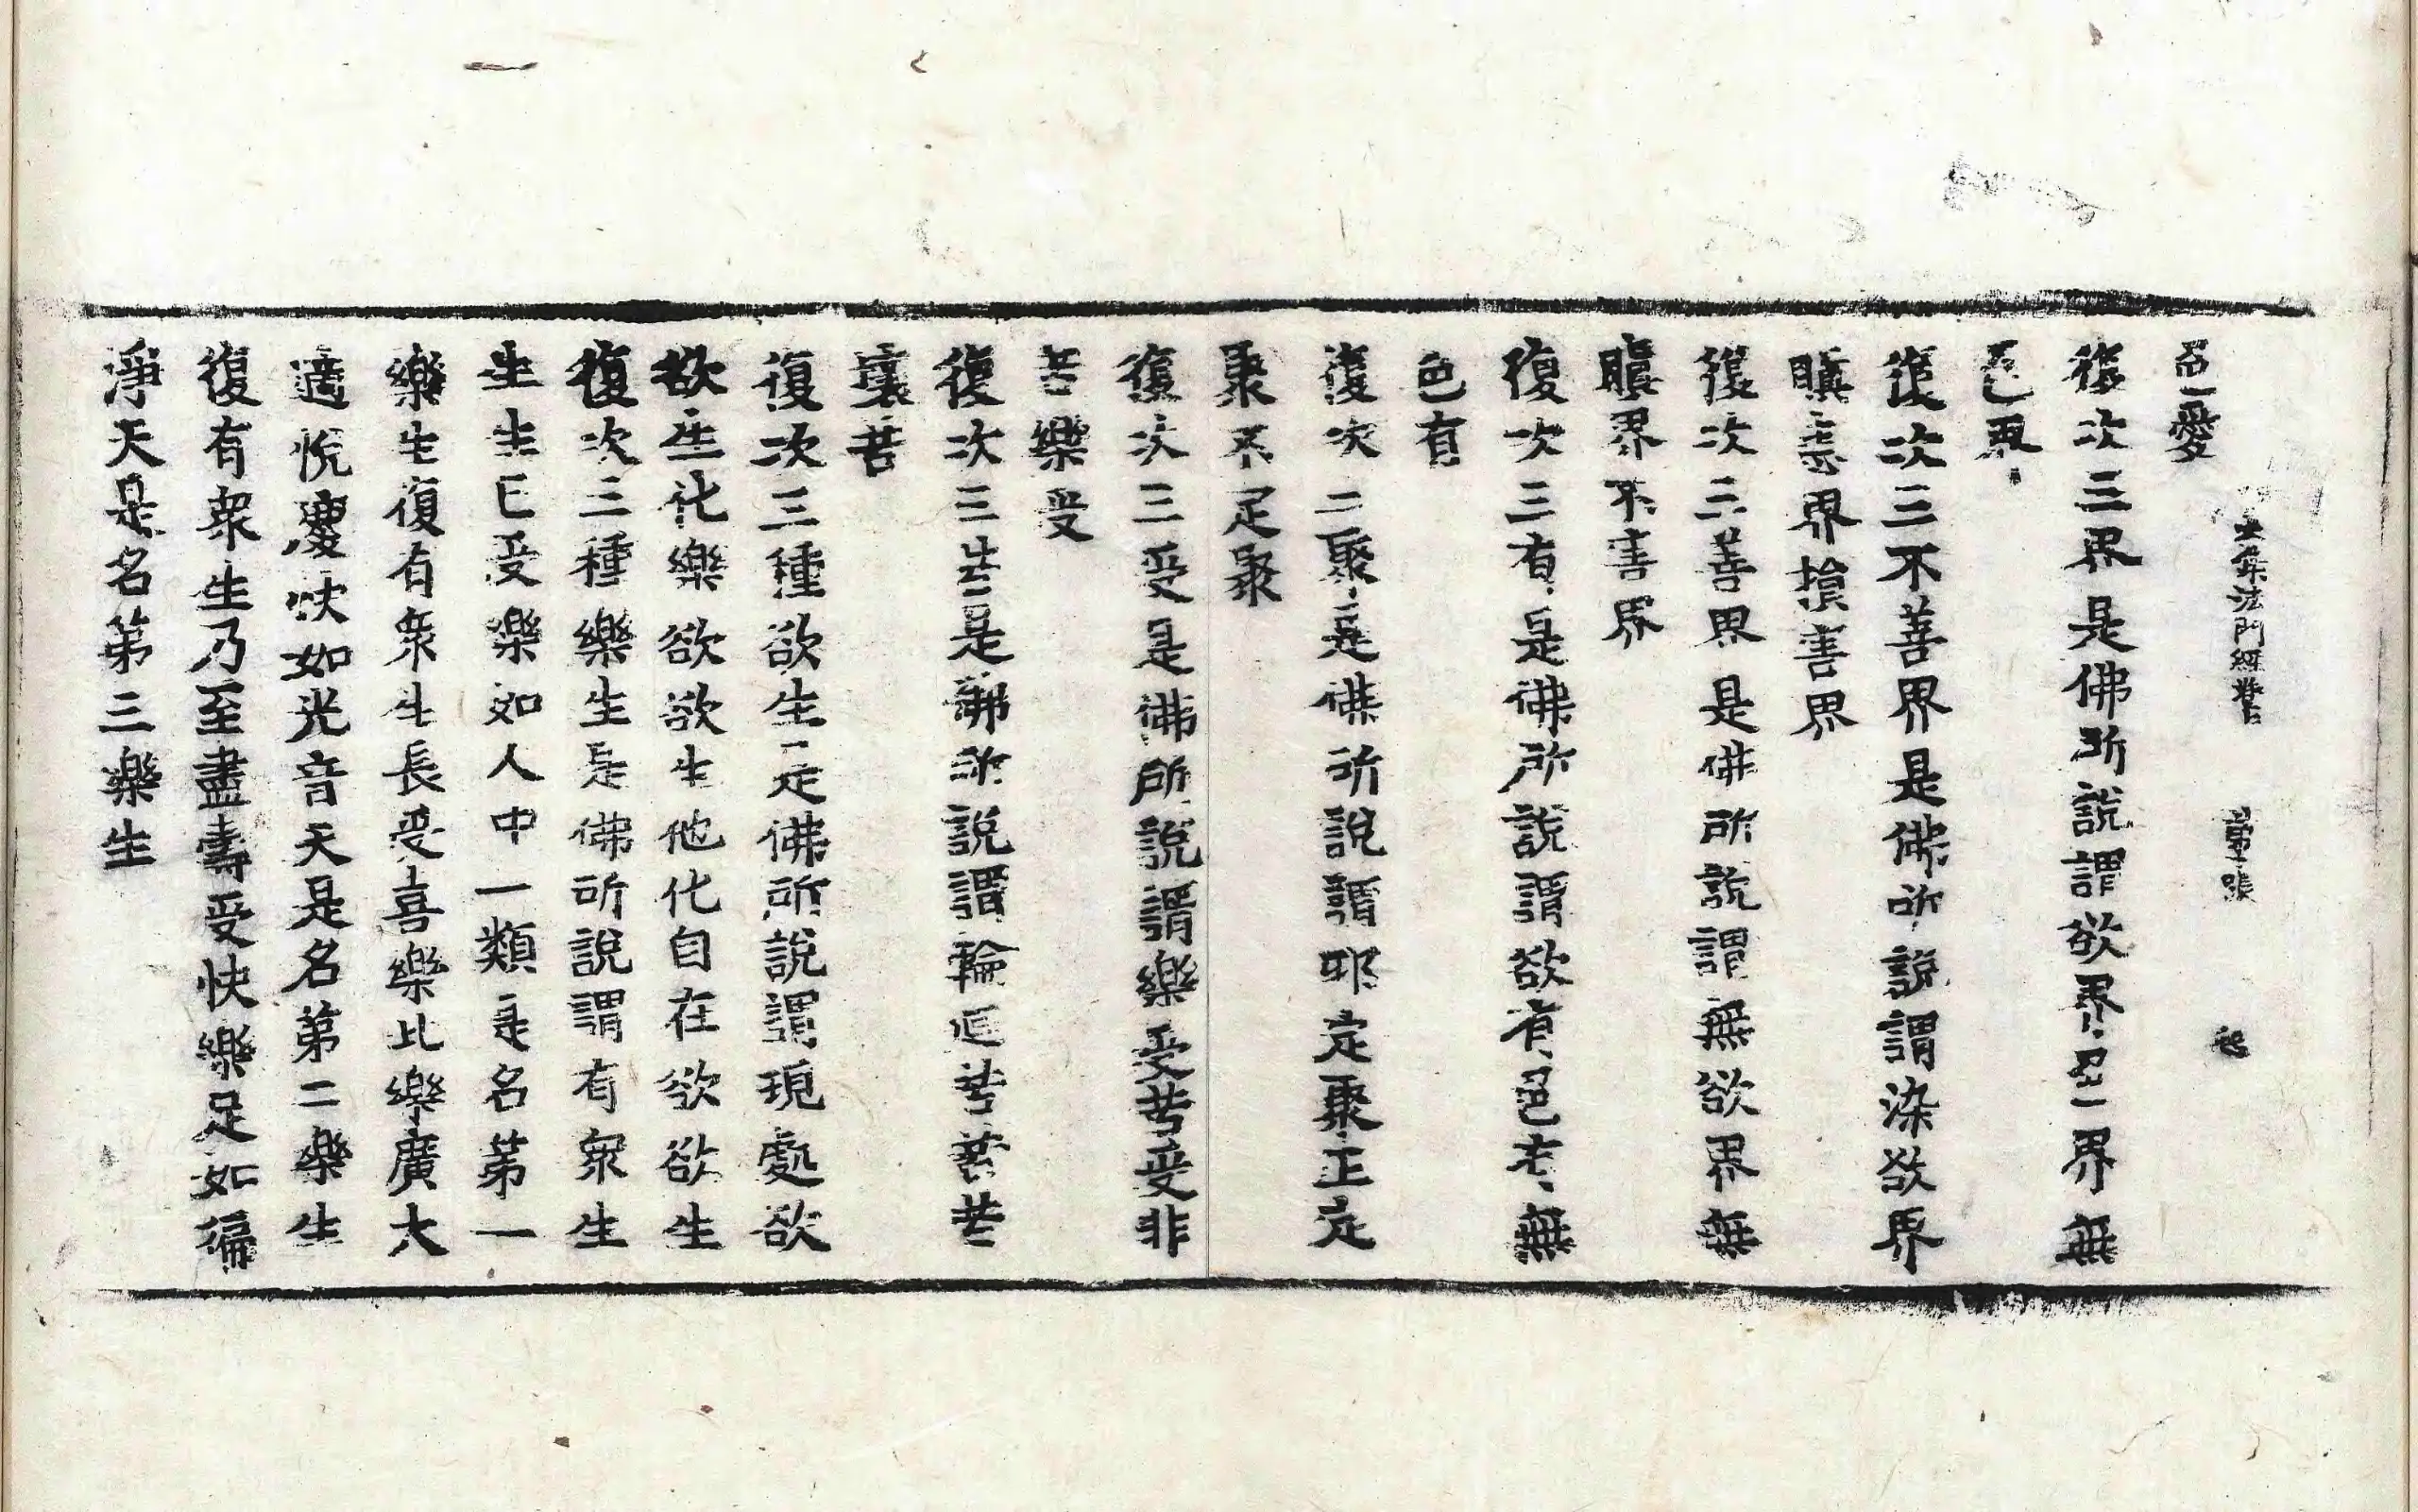 色愛
大集法門經卷上 第 張 起
復次三界是佛所說謂欲界色界無
色界
復次三不善界是佛所說謂染欲界
瞋恚界損害界
復次三善界是佛所說謂無欲界無
瞋界不害界
復次三有是佛所說謂欲有色有無
色有
復次三聚是佛所說謂耶定聚正定
聚不定聚
復次三受是佛所說謂樂受苦受非
苦樂受
復次三苦是佛所說謂輪迴苦苦苦
壞苦
復次三種欲生是佛所說謂現處欲
欲生化樂欲欲生他化自在欲欲生
復次三種樂生是佛所說謂有衆生
生生已受樂如人中一類是名第一
樂生復有衆生長受喜樂此樂廣大
適悅慶快如光音天是名第二樂生
復有衆生乃至盡壽受快樂足如徧
淨天是名第三樂生